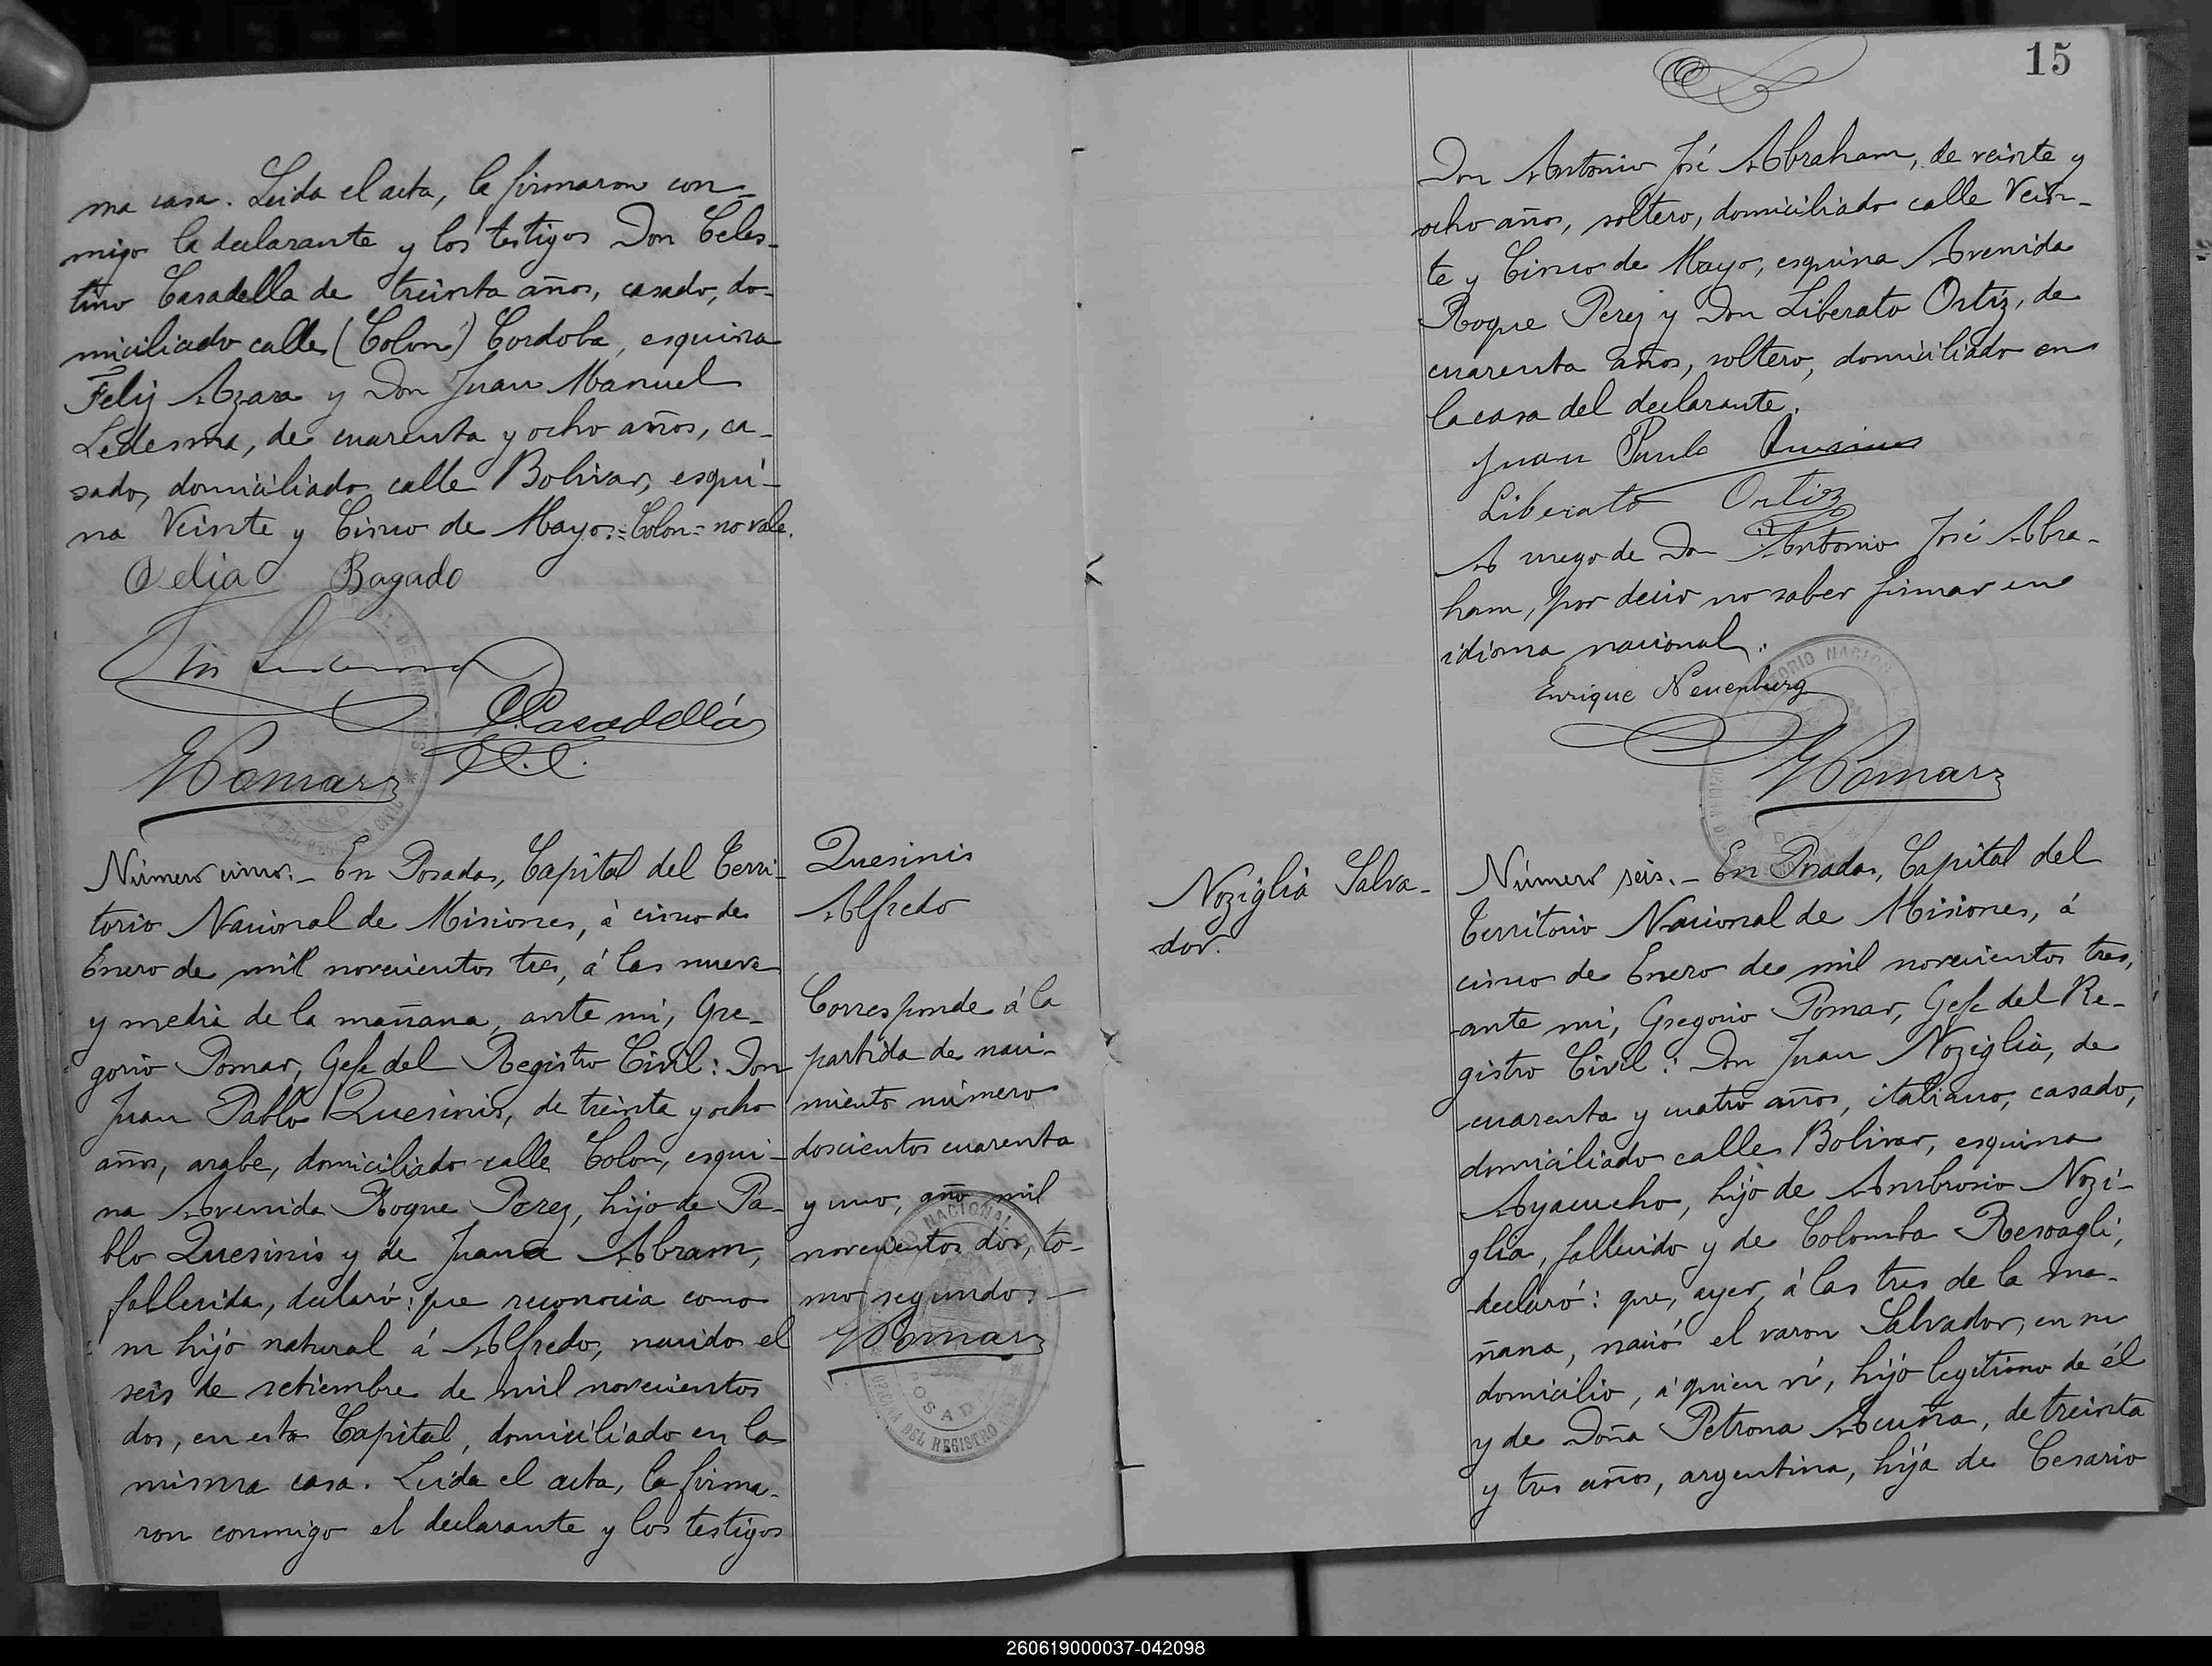 ma casa. Leida el acta, la firmaron con-
migo la declarante y los testigos Don Celes-
tino Casadella de treinta años, casado, do-
miciliado calle (Colon) Cordoba, esquina
Feliz Azara y Don Juan Manuel
Ledesma, de cuarenta y ocho años, ca-
sado, domiciliado calle Bolivar, esqui-
na Veinte y Cinco de Mayo.=Colon=no vale.
Celia Bagado
CCasadellá
GPomar
Número cinco.- En Posadas, Capital del Terri-
torio Nacional de Misiones, á cinco de
Enero de mil novecientos tres, á las nueve
y media de la mañana, ante mi, Gre-
gorio Pomar, Gefe del Registro Civil: Don
Juan Pablo Quesinis, de treinta y ocho
años, arabe, domiciliado calle Colon, esqui-
na Avenida Roque Perez, hijo de Pa-
blo Quesinis y de Juana Abram,
fallecida, declaró: que reconocia como
su hijo natural á Alfredo, nacido el
seis de setiembre de mil novecientos
dos, en esta Capital, domiciliado en la
misma casa. Leida el acta, la firma-
ron conmigo el declarante y los testigos
Quesinis
Alfredo
Corresponde á la
partida de naci-
miento número
doscientos cuarenta
y uno, año mil
novecientos dos, to-
mo segundo.-
GPomar
NACIONAL
POSAD
OFICINA DEL REGISTRO
15
Don Antonio José Abraham, de veinte y
ocho años, soltero, domiciliado calle Vein-
te y Cinco de Mayo, esquina Avenida
Roque Perez y Don Liberato Ortiz, de
cuarenta años, soltero, domiciliado en
la casa del declarante.
Juan Paulo
Liberato Ortiz
A ruego de Don Antonio José Abra-
ham, por decir no saber firmar en
idioma nacional.
Enrique Neuenburg
GPomar
Noziglia Salva-
dor.
Número seis.- En Posadas, Capital del
Territorio Nacional de Misiones, á
cinco de Enero de mil novecientos tres,
ante mi, Gregorio Pomar, Gefe del Re-
gistro Civil: Don Juan Noziglia, de
cuarenta y cuatro años, italiano, casado,
domiciliado calle Bolivar, esquina
Ayacucho, hijo de Ambrosio Nozi-
glia, fallecido y de Colomba Resoagli,
declaró: que, ayer, á las tres de la ma-
ñana, nació el varon Salvador, en su
domicilio, á quien ví, hijo legitimo de él
y de Doña Petrona Acuña, de treinta
y tres años, argentina, hija de Cesario
260619000037-042098